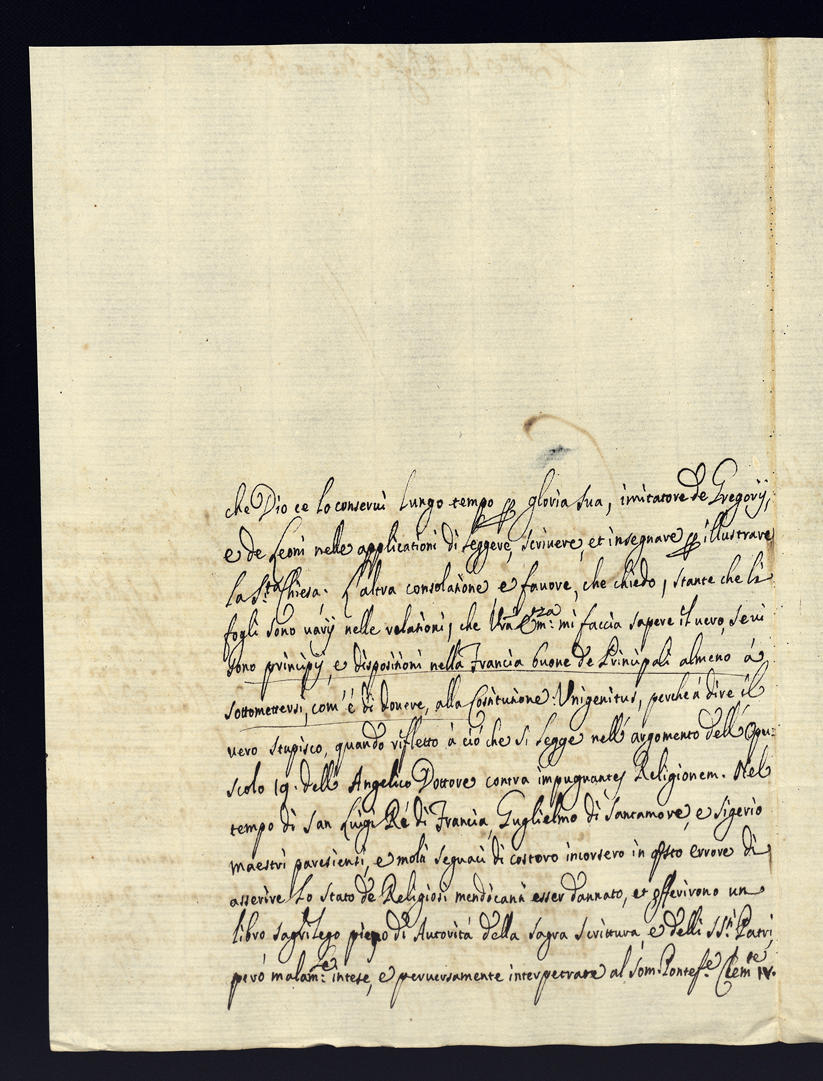 che Dio ce lo conservi lungo tempo p gloria sua, imitatore de Gregorij,
e de Leoni nelle applicationi di leggere, scrivere, et insegnare p illustrare
la S.ta Chiesa. L'altra consolatione e favore, che chiedo, stante che li
fogli sono varij nelle relationi, che Vra Em:za mi faccia sapere il vero, se vi
sono principij, e dispositioni nella Francia buone de Principali almeno à
sottomettersi, com'è di dovere, alla Constitutione: Unigenitus, perche à dire il
vero stupisco, quando rifletto à ciò che si legge nell'argomento dell'Opu=
scolo 19. dell'Angelico Dottore contra impugnantes Religionem. Nel
tempo di San Luigi Rè di Francia, Guglielmo di Santamore, e Sigerio
maestri paresienti, e molti seguaci di costoro incorsero in qsto errore di
asserire lo stato de Religiosi mendicanti esser dannato, et offerirono un
libro sagrilego pieno di Autorità della sagra scrittura, e delli SS.ti Patri,
però malam:e intese, e perversamente interpetrate al Som. Pontef.e Clem.te IV.